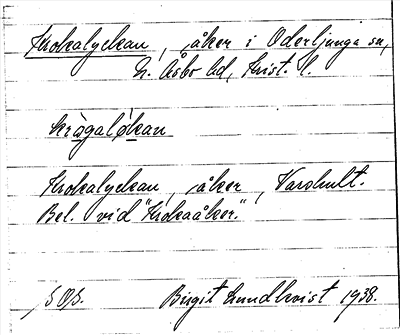 Krokalyckan, åker i Oderljunga sn,
N. Åsbo hd, Krist. l.
kràgaløkan
Krokalyckan, åker, Varshult.
Bel. vid "Krokaåker."
Birgit Lundkvist 1938.